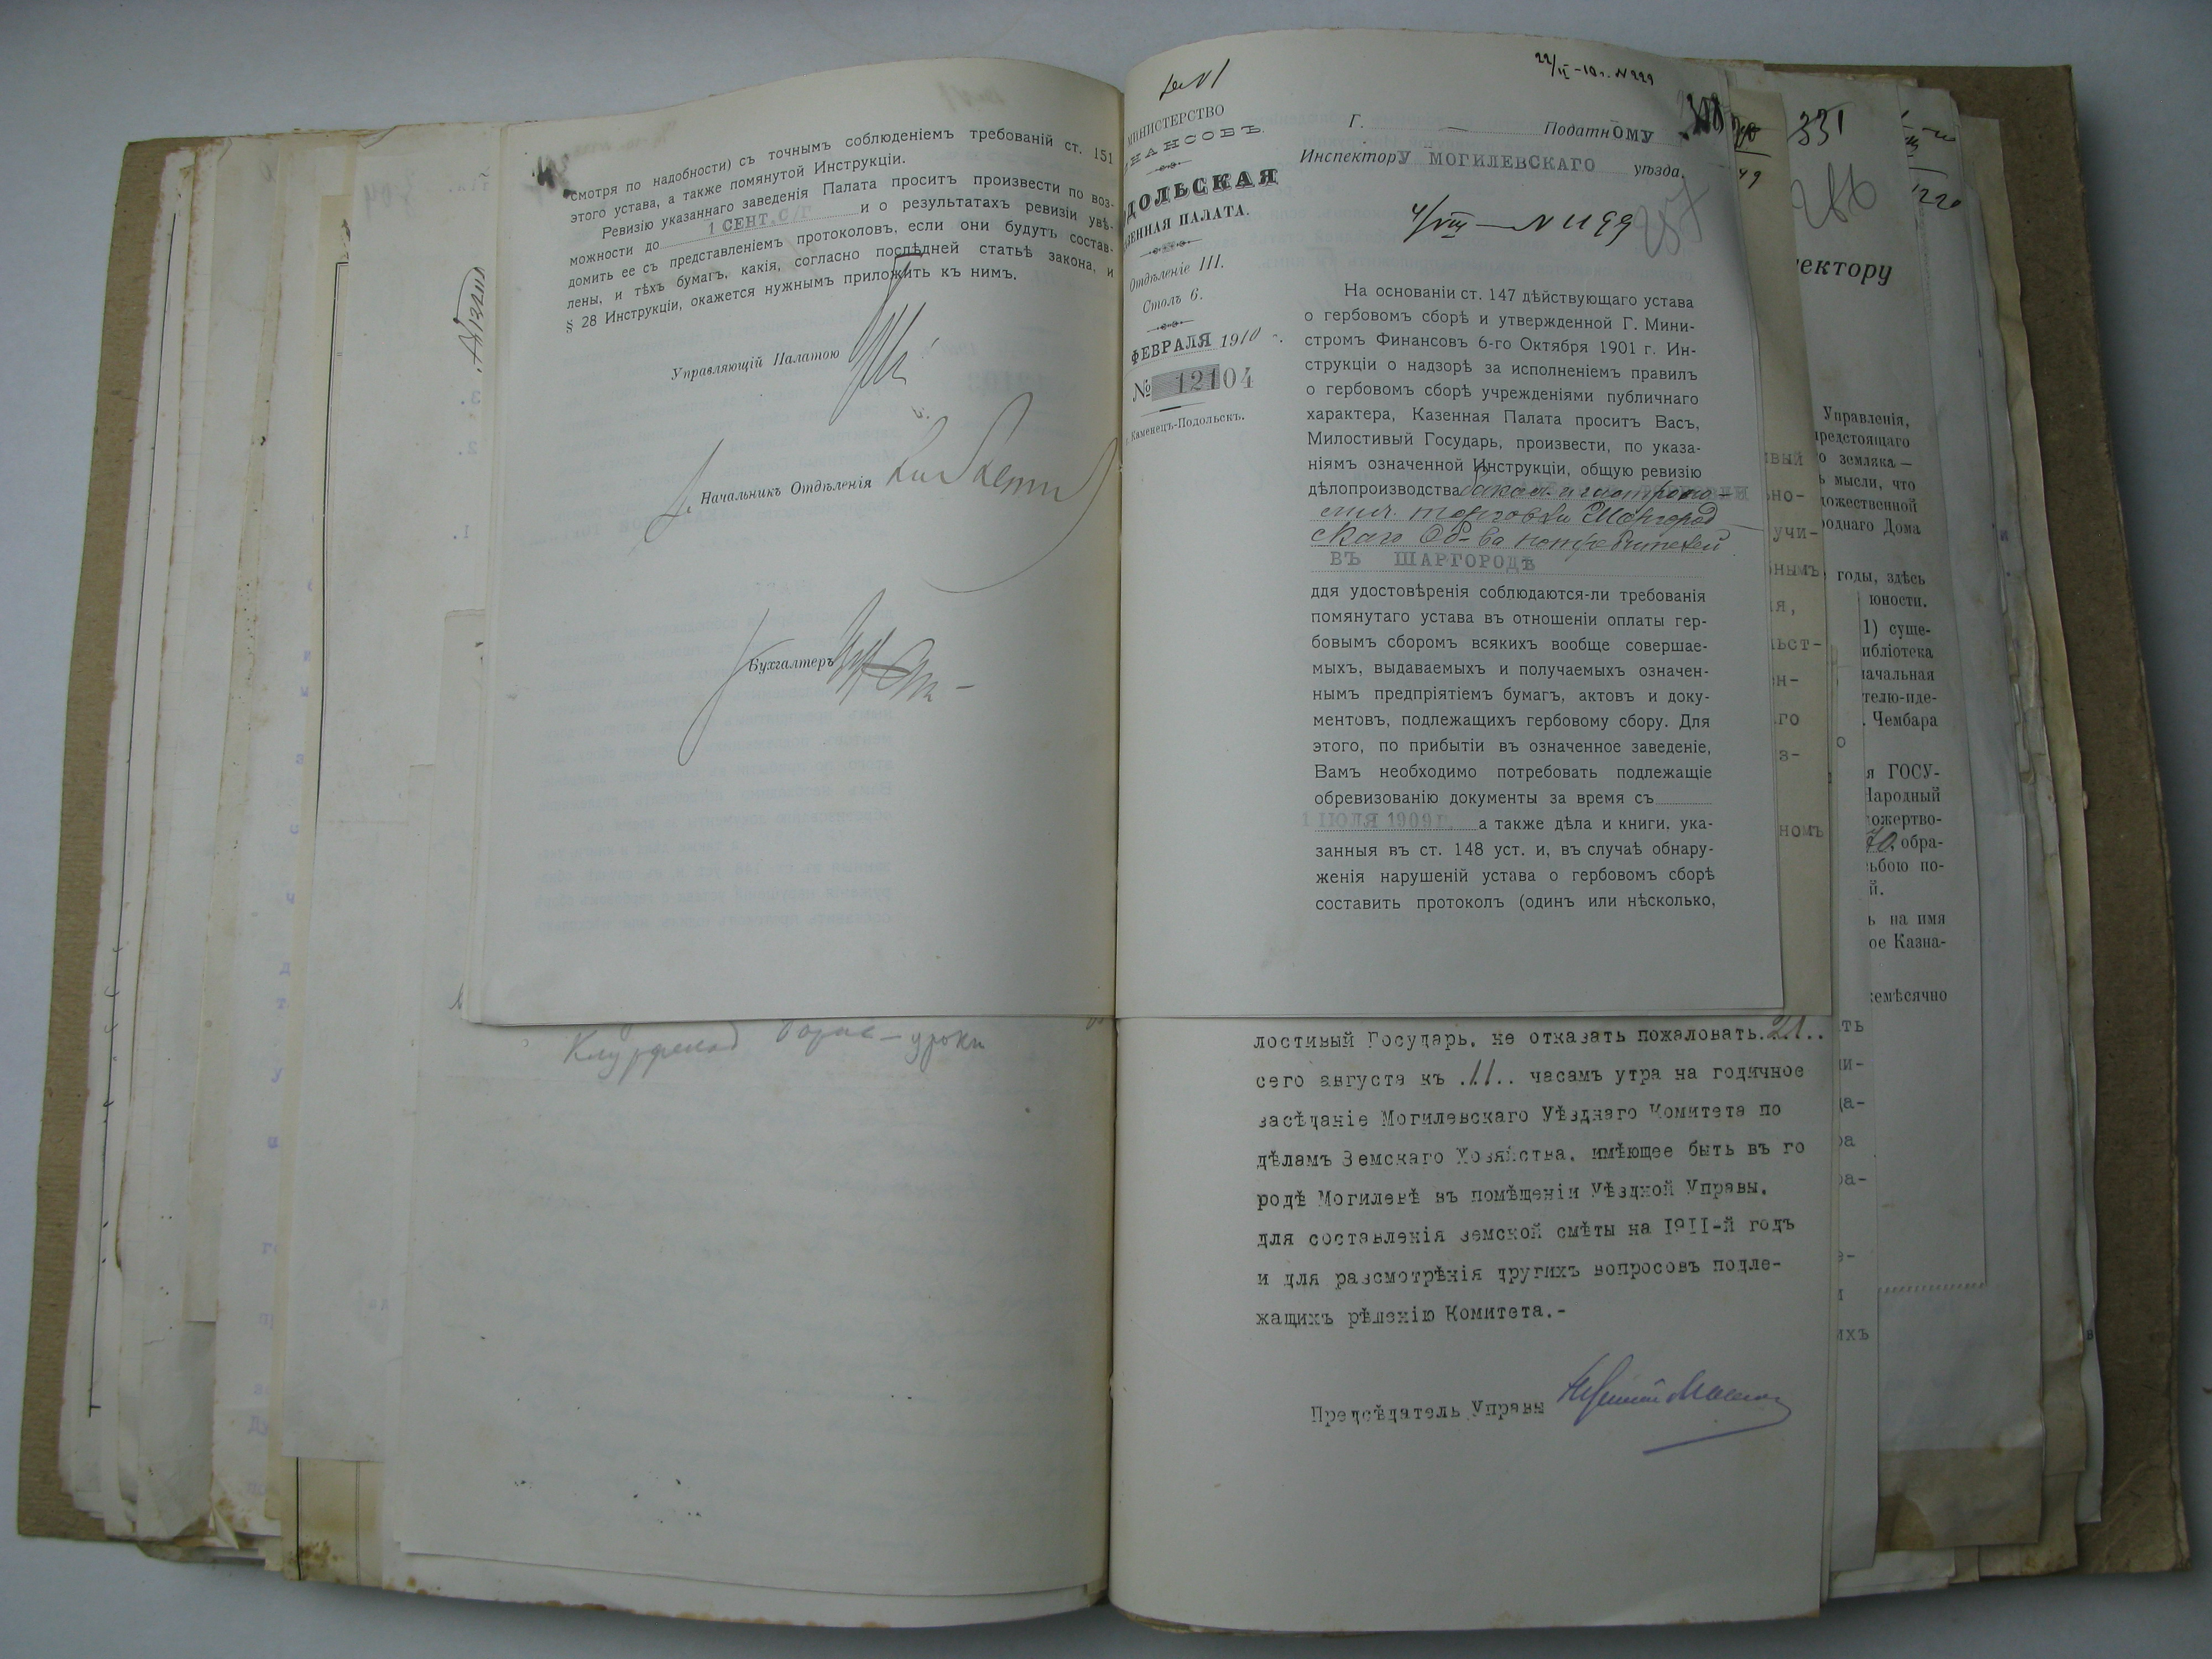 смотря по надобности) съ точнымъ соблюденіемъ требованій ст. 151
этого устава, а также помянутой Инструкціи.
Ревизію указаннаго заведенія Палата проситъ произвести по воз-
можности до 1 СЕНТ. С/Г и о результатахъ ревизіи увѣ-
домить ее съ представленіемъ протоколовъ, если они будутъ состав-
лены, и тѣхъ бумагъ, какія, согласно послѣдней статьѣ закона, и
§ 28 Инструкціи, окажется нужнымъ приложить къ нимъ.
Управляющій Палатою
Начальникъ Отдѣленія
Бухгалтеръ
уроки
МИНИСТЕРСТВО
НАНСОВЪ.
ДОЛЬСКАЯ
ЗЕННАЯ ПАЛАТА.
Отдѣленіе III.
Столъ 6.
ФЕВРАЛЯ 1910 г.
№ 12104
г. Каменецъ-Подольскъ.
22/II-10 г. N 229
Г. — ПодатнОМУ
ИнспекторУ МОГИЛЕВСКАГО уѣзда.
4/VIII — N 1199
257
На основаніи ст. 147 дѣйствующаго устава
о гербовомъ сборѣ и утвержденной Г. Мини-
стромъ Финансовъ 6-го Октября 1901 г. Ин-
струкціи о надзорѣ за исполненіемъ правилъ
о гербовомъ сборѣ учрежденіями публичнаго
характера, Казенная Палата проситъ Васъ,
Милостивый Государь, произвести, по указа-
ніямъ означенной Инструкціи, общую ревизію
дѣлопроизводства бакал. и гастроно-
мич. торговли Шаргород
скаго Об-ва потребителей
ВЪ ШАРГОРОДѢ
ддя удостовѣренія соблюдаются-ли требованія
помянутаго устава въ отношеніи оплаты гер-
бовымъ сборомъ всякихъ вообще совершае-
мыхъ, выдаваемыхъ и получаемыхъ означен-
нымъ предпріятіемъ бумагъ, актовъ и доку-
ментовъ, подлежащихъ гербовому сбору. Для
этого, по прибытіи въ означенное заведеніе,
Вамъ необходимо потребовать подлежащіе
обревизованію документы за время съ
1 ІЮЛЯ 1909 Г. а также дѣла и книги, ука-
занныя въ ст. 148 уст. и, въ случаѣ обнару-
женія нарушеній устава о гербовомъ сборѣ
составить протоколъ (одинъ или нѣсколько,
лостивый Государь, не отказать пожаловать 21..
сего августа къ .11.. часамъ утра на годичное
засѣданіе Могилевскаго Уѣзднаго Комитета по
дѣламъ Земскаго Хозяйства, имѣющее быть въ го
родѣ Могилевѣ въ помѣщеніи Уѣздной Управы,
для составленія земской смѣты на 1911-й годъ
и для разсмотрѣнія другихъ вопросовъ подле-
жащихъ рѣшенію Комитета.-
Предсѣдатель Управы
331
286
ектору
Управленія,
предстоящаго
о земляка —
ь мысли, что
дожественной
роднаго Дома
годы, здѣсь
юности.
1) суще-
ибліотека
начальная
телю-иде-
. Чембара
я ГОСУ-
Народный
ожертво-
обра-
ьбою по-
й.
ь на имя
ое Казна-
емѣсячно